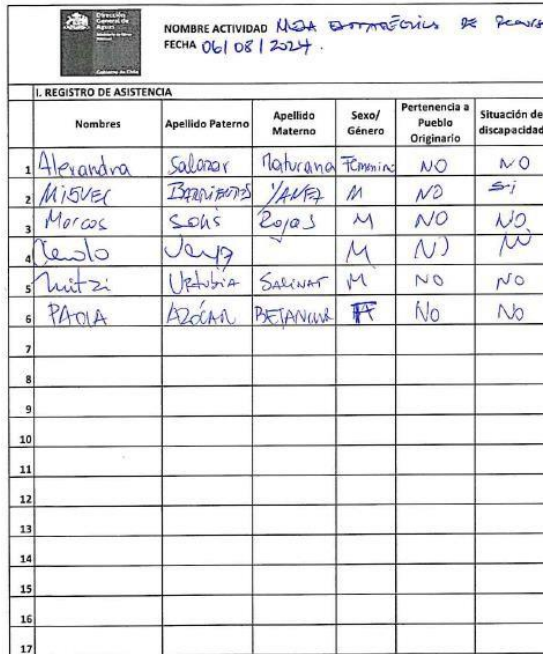 Dirección
General de
Aguas
Gobierno de Chile
NOMBRE ACTIVIDAD MESA DE
FECHA 06/08/2024.
I. REGISTRO DE ASISTENCIA
Nombres Apellido Paterno Apellido Materno Sexo/ Género Pertenencia a Pueblo Originario Situación de discapacidad
1 Alexandra Salazar Maturana Femenino NO NO
2 MIGUEL BARRIENTOS YAÑEZ M NO Si
3 Marcos Solis Rojas M NO NO
4 M NO NO
5 Mitzi Urtubia SALINAS M NO NO
6 PAOLA AZÓCAR BETANCUR F No No
7
8
9
10
11
12
13
14
15
16
17